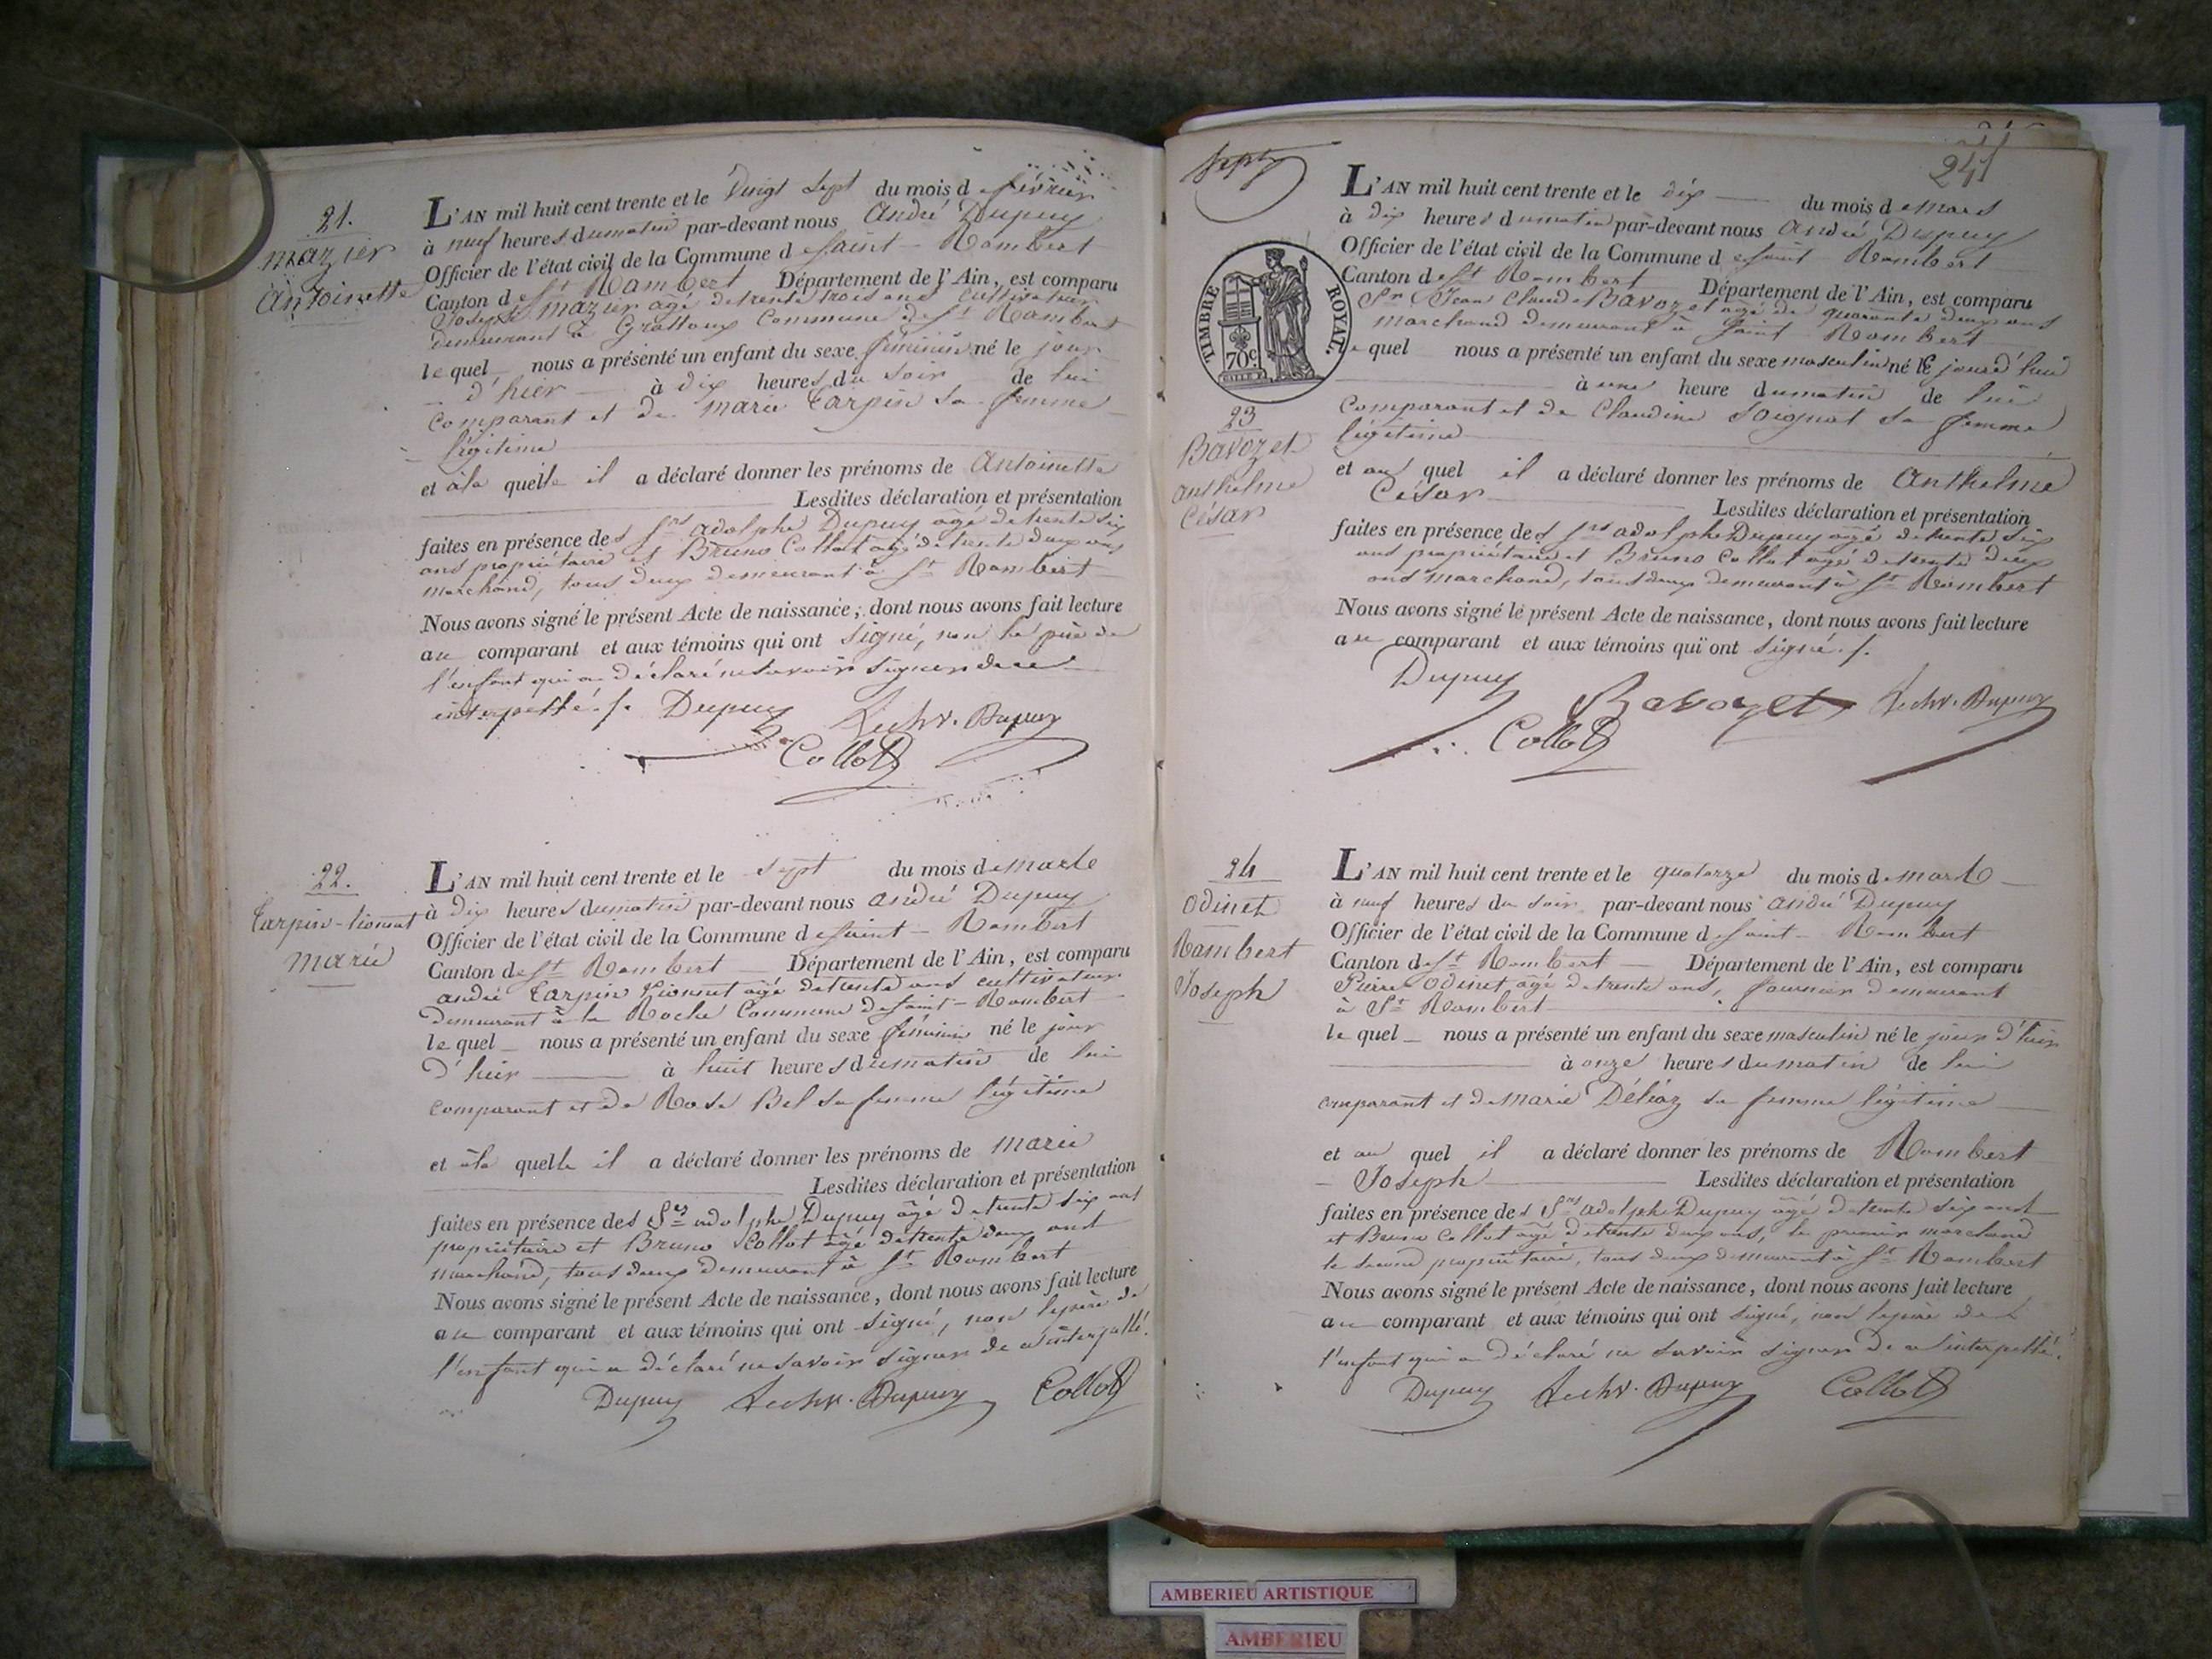 21.
mazier
Antoinette
L'AN mil huit cent trente et le Vingt Sept du mois de février
à neuf heures du matin par-devant nous André Dupuy
Officier de l'état civil de la Commune de Saint-Rambert
Canton de St Rambert Département de l'Ain, est comparu
Joseph Mazier agé de trente trois ans cultivateur
demeurant à Grattoux Commune de St Rambert
lequel nous a présenté un enfant du sexe féminin né le jour
d'hier à dix heures du soir de lui
comparant et de marie Carpin sa femme
légitime
et à la quelle il a déclaré donner les prénoms de Antoinette
Lesdites déclaration et présentation
faites en présence des Srs adolphe Dupuy agé de trente six
ans propriétaire et Bruno Collot agé de trente deux ans
marchand, tous deux demeurant à St Rambert
Nous avons signé le présent Acte de naissance, dont nous avons fait lecture
au comparant et aux témoins qui ont signé, non le père de
l'enfant qui a déclaré ne savoir signer de ce
interpellé ./. Dupuy Dupuy
Collot
22.
Carpin-Vionnet
marie
L'AN mil huit cent trente et le sept du mois de mars
à Dix heures du matin par-devant nous andré Dupuy
Officier de l'état civil de la Commune de Saint-Rambert
Canton de St Rambert Département de l'Ain, est comparu
andré Carpin Vionnet agé de trente ans cultivateur
demeurant à la Roche Commune de Saint-Rambert
lequel nous a présenté un enfant du sexe féminin né le jour
d'hier à huit heures du matin de lui
comparant et de Rose Bel sa femme légitime
et à la quelle il a déclaré donner les prénoms de marie
Lesdites déclaration et présentation
faites en présence des Srs adolphe Dupuy âgé de trente six ans
propriétaire et Bruno Collot âgé de trente deux ans
marchand, tous deux demeurant à St Rambert
Nous avons signé le présent Acte de naissance, dont nous avons fait lecture
au comparant et aux témoins qui ont signé, non le père de
l'enfant qui a déclaré ne savoir signer de ce interpellé.
Dupuy Dupuy Collot
sept
24
TIMBRE ROYAL.
70c
23
Bavozet
anthelme
César
L'AN mil huit cent trente et le dix du mois de mars
à dix heures du matin par-devant nous André Dupuy
Officier de l'état civil de la Commune de Saint Rambert
Canton de St Rambert Département de l'Ain, est comparu
Sr Jean Claude Bavozet agé de quarante deux ans
marchand demeurant à Saint Rambert
le quel nous a présenté un enfant du sexe masculin né le jour d'hui
à une heure du matin de lui
comparant et de Claudine Soignat sa femme
légitime
et au quel il a déclaré donner les prénoms de Anthelme
César Lesdites déclaration et présentation
faites en présence des Srs adolphe Dupuy agé de trente six
ans propriétaire et Bruno Collot agé de trente deux
ans marchand, tous deux demeurant à St Rambert
Nous avons signé le présent Acte de naissance, dont nous avons fait lecture
au comparant et aux témoins qui ont signé ./.
Dupuy Bavozet Dupuy
Collot
24
Odinet
Rambert
Joseph
L'AN mil huit cent trente et le quatorze du mois de mars
à neuf heures du soir par-devant nous André Dupuy
Officier de l'état civil de la Commune de Saint-Rambert
Canton de St Rambert Département de l'Ain, est comparu
Pierre Odinet agé de trente ans, fournier demeurant
à St Rambert
le quel nous a présenté un enfant du sexe masculin né le jour d'hier
à onze heures du matin de lui
comparant et de marie Déliaz sa femme légitime
et au quel il a déclaré donner les prénoms de Rambert
Joseph Lesdites déclaration et présentation
faites en présence des Srs adolphe Dupuy âgé de trente six ans
et Bruno Collot âgé de trente deux ans, le premier marchand
le second propriétaire, tous deux demeurant à St Rambert
Nous avons signé le présent Acte de naissance, dont nous avons fait lecture
au comparant et aux témoins qui ont signé, non le père de
l'enfant qui a déclaré ne savoir signer de ce interpellé.
Dupuy Dupuy Collot
AMBERIEU ARTISTIQUE
AMBERIEU